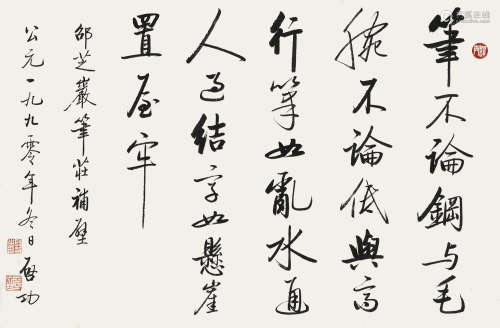 筆不論鋼与毛
腕不論低與高
行筆如亂水通
人過結字如懸崖
置屋牢
邵芝巖筆莊補壁
公元一九九零年冬日啟功